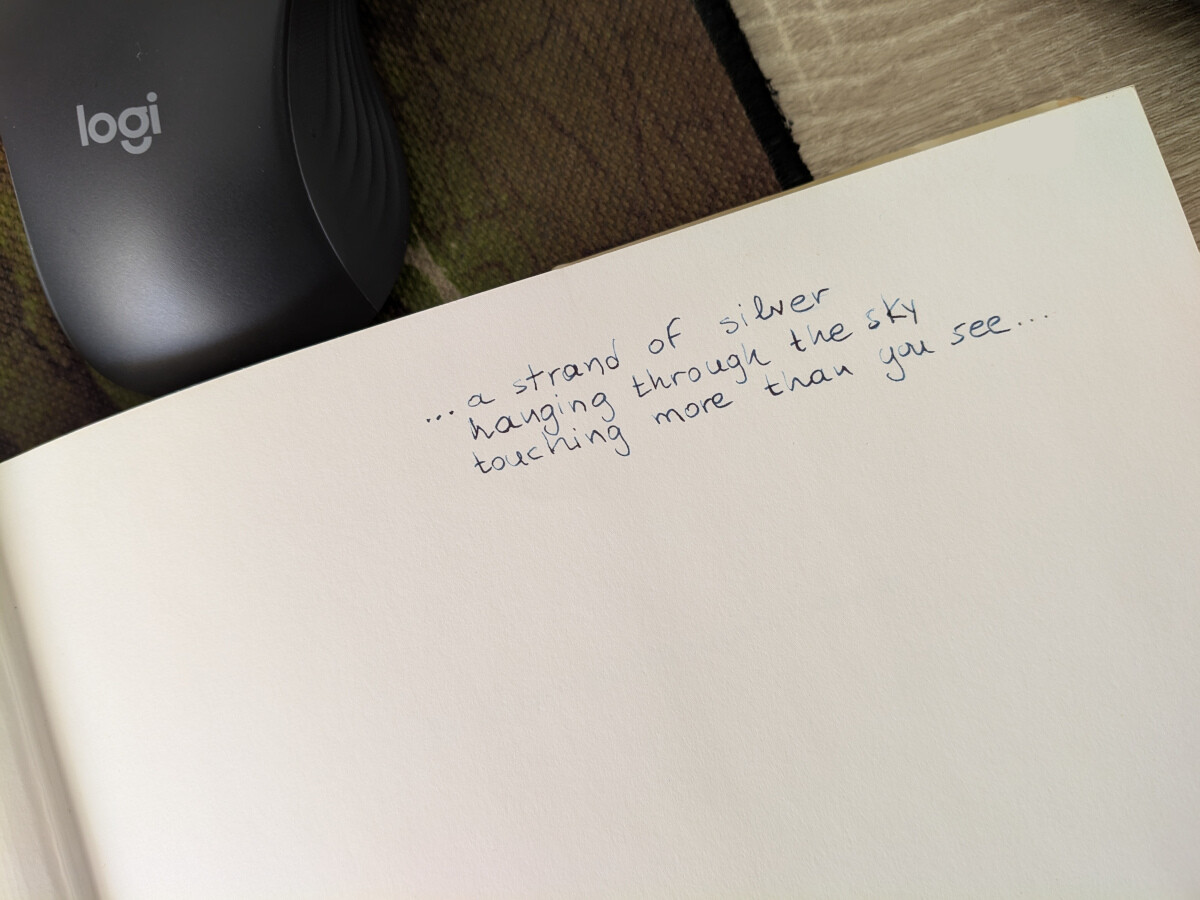 logi
...a strand of silver
hanging through the sky
touching more than you see...